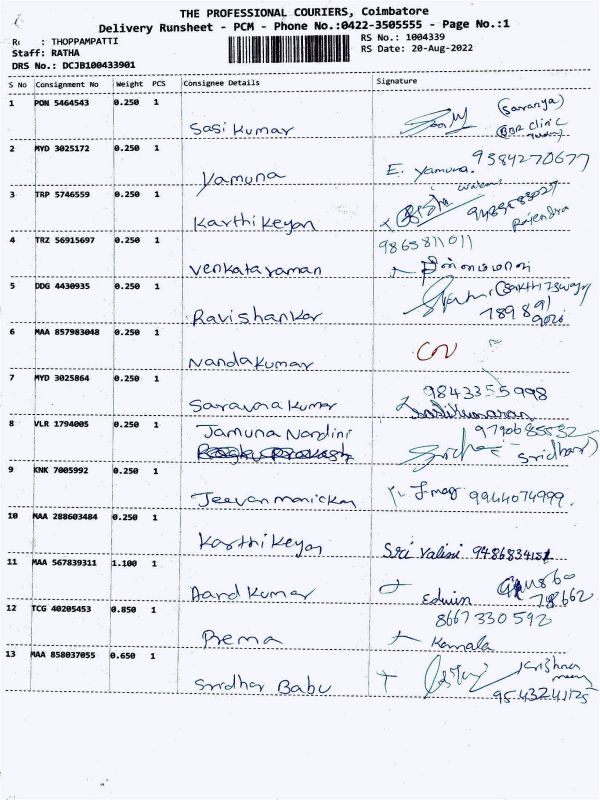 THE PROFESSIONAL COURIERS, Coimbatore
Delivery Runsheet - PCM - Phone No.:0422-3505555 - Page No.:1
: THOPPAMPATTI
RS No.: 1004339
Staff: RATHA
RS Date: 20-Aug-2022
DRS No.: DCJB100433901
S No Consignment No Weight PCS Consignee Details Signature
1 PON 5464543 0.250 1
Sasi Kumar (Saranya)
2 MYD 3025172 0.250 1
Yamuna E. Yamuna. 9384270677
3 TRP 5746559 0.250 1
Karthikeyan Rajendra
4 TRZ 56915697 0.250 1 9865811011
Venkataraman
5 DDG 4430935 0.250 1
Ravishankar
6 MAA 857983048 0.250 1
Nandakumar
7 MYD 3025864 0.250 1 9843355998
Saravanakumar
8 VLR 1794005 0.250 1 Jamuna Nandini 9790685532
Sridhar
9 KNK 7005992 0.250 1
Jeevanmanickam 9944074999.
10 MAA 288603484 0.250 1
Karthikeyan Sri Valini
11 MAA 567839311 1.100 1
Anand Kumar Edwin
12 TCG 40205453 0.850 1 8667330592
Prema Kamala
13 MAA 858037055 0.650 1
Sridhar Babu Krishna